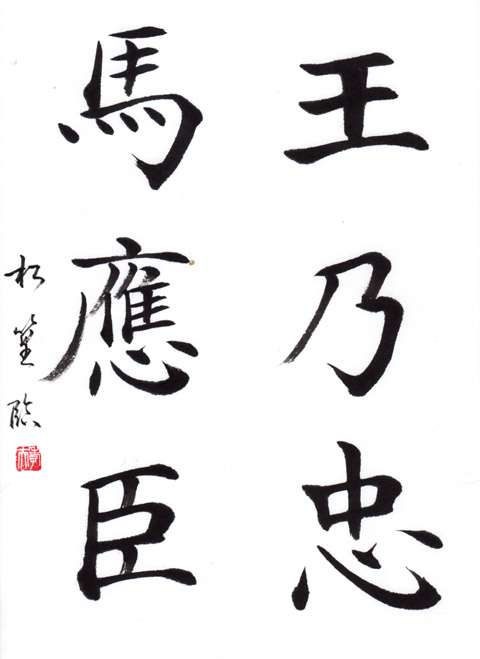 王乃忠
馬應臣
松篁臨